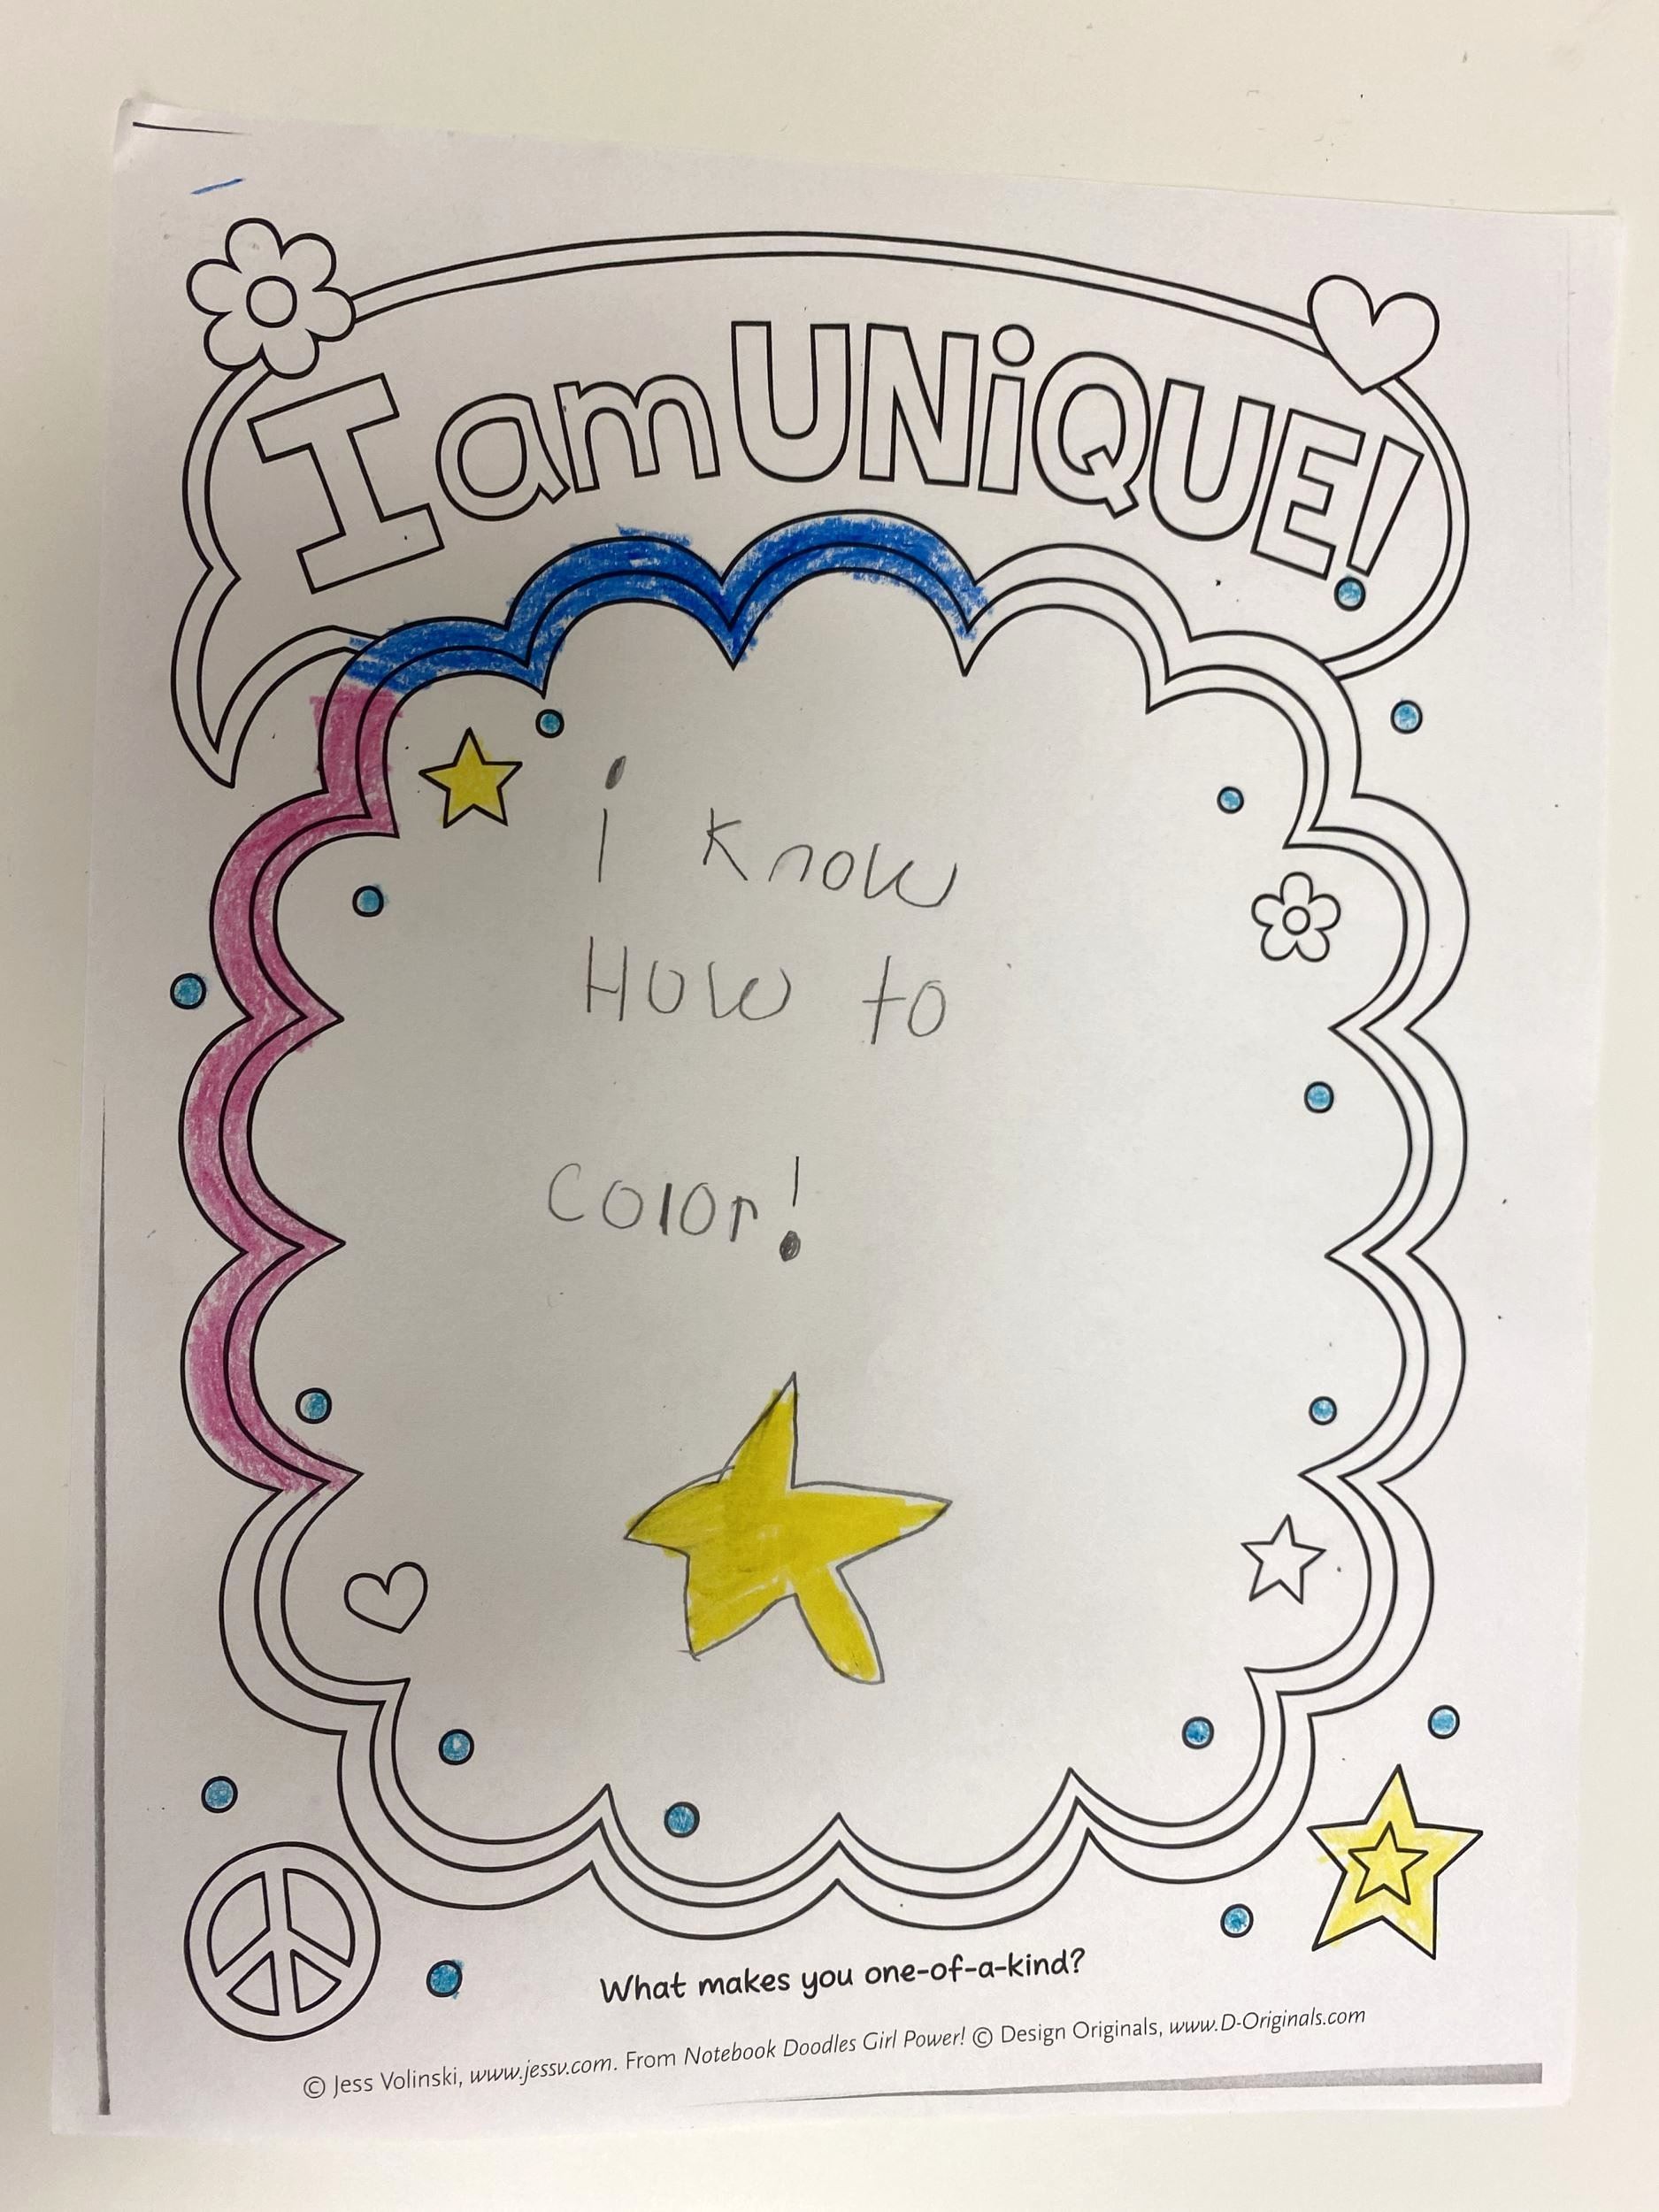 I am UNiQUE!
i know
How to
color!
What makes you one-of-a-kind?
© Jess Volinski, www.jessv.com. From Notebook Doodles Girl Power! © Design Originals, www.D-Originals.com